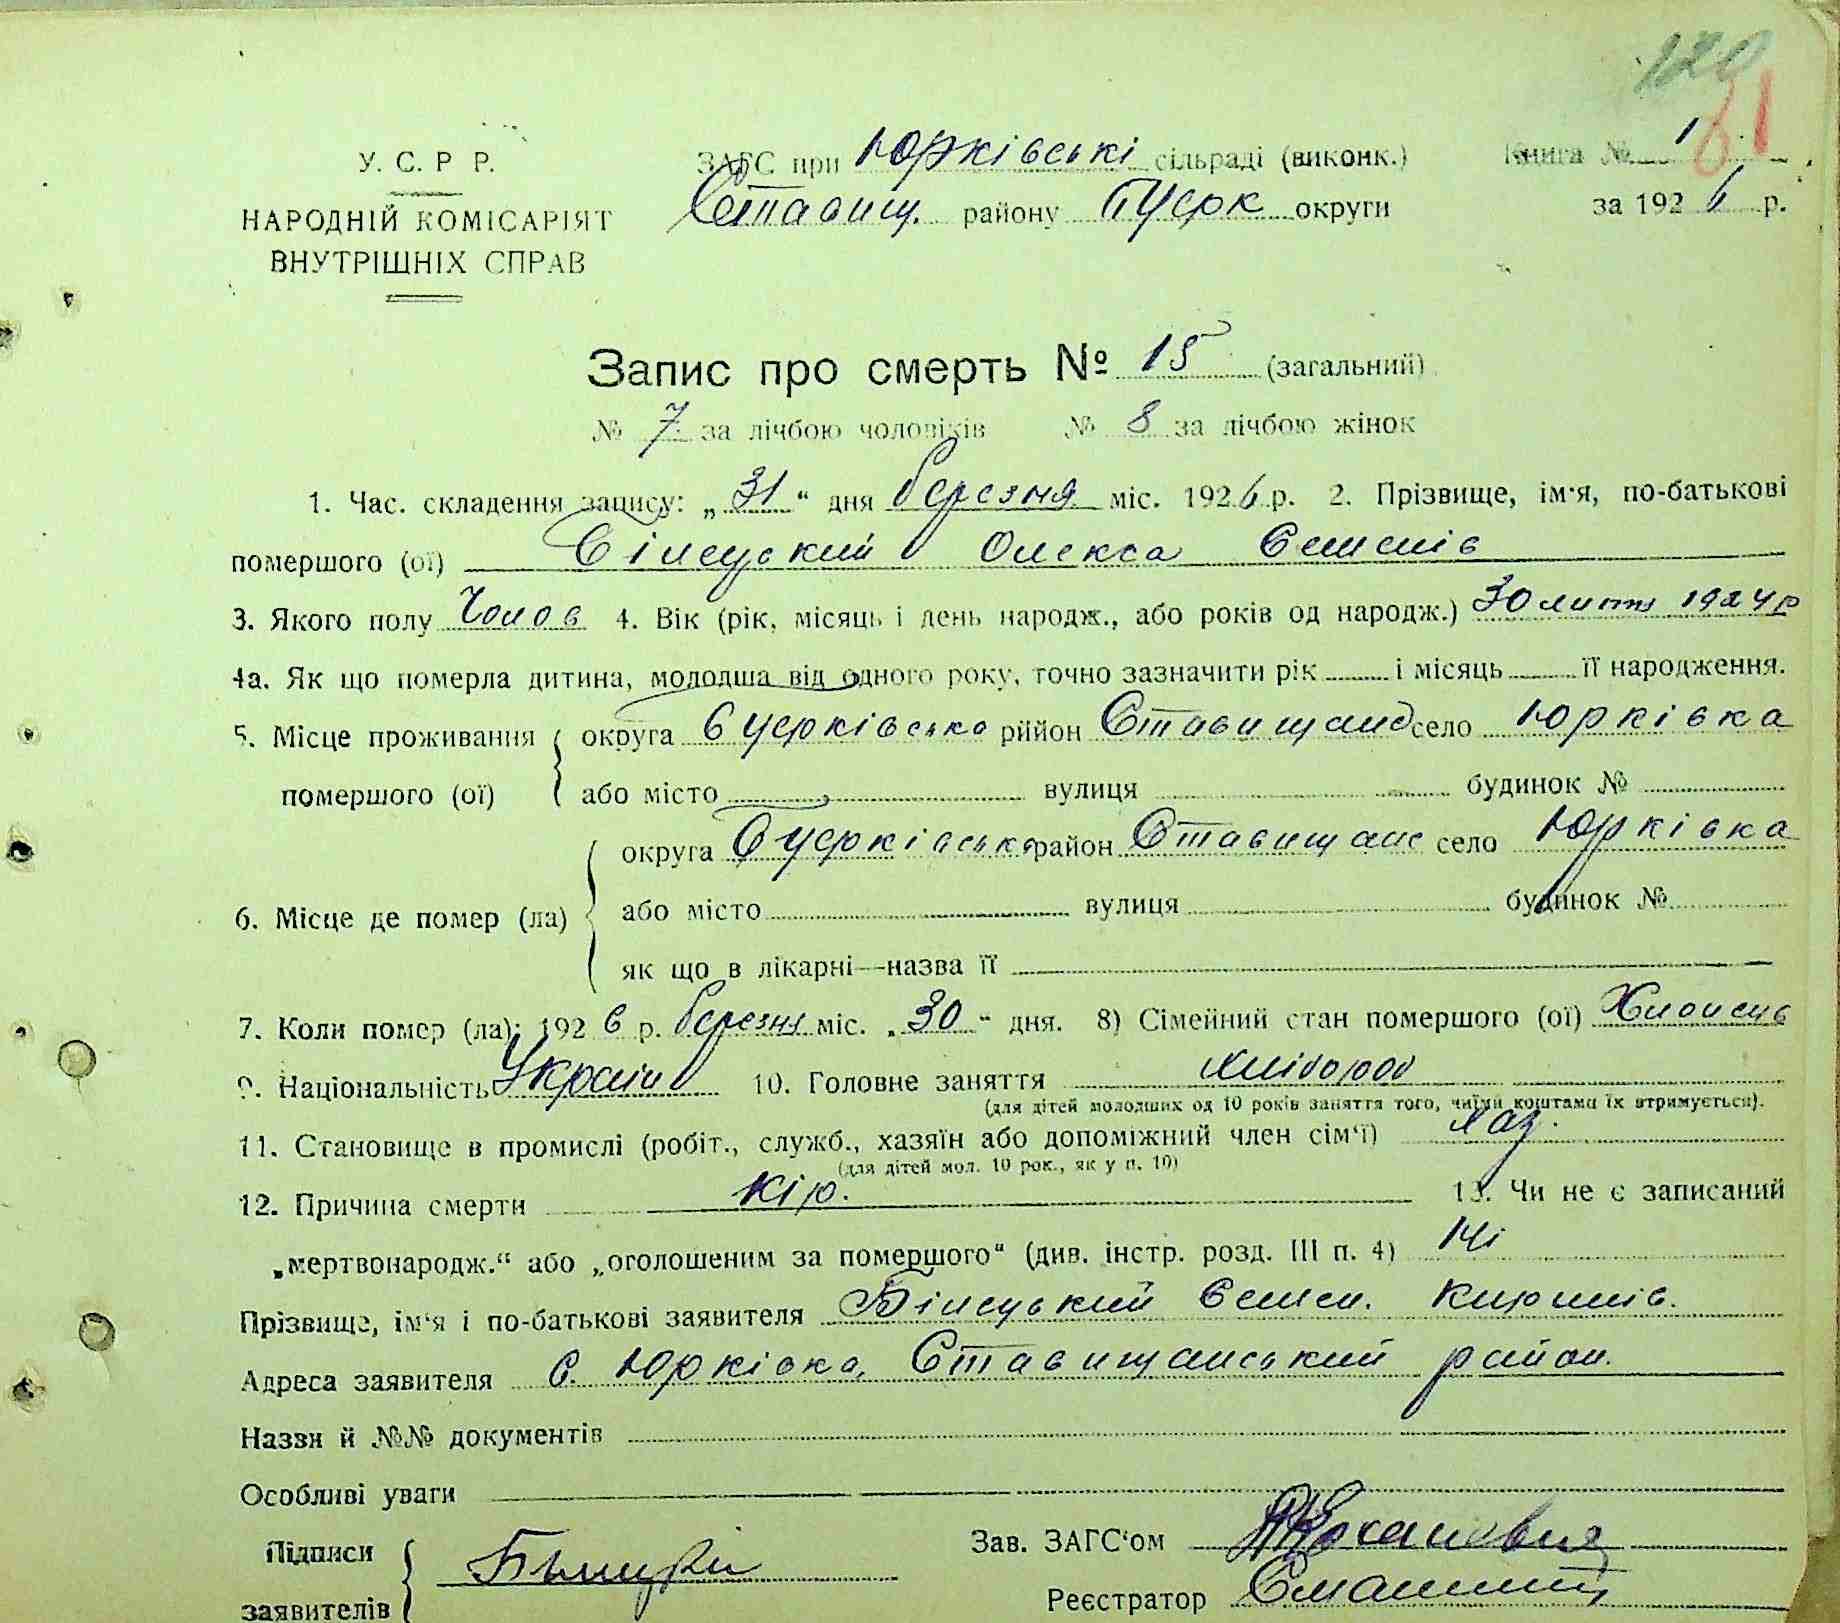 120
61
У. С. Р Р.
НАРОДНІЙ КОМІСАРІЯТ
ВНУТРІШНІХ СПРАВ
ЗАГС при Юрківські сільраді (виконк.)
Ставищ. району округи
Книга № 1
за 1926 р.
Запис про смерть № 15 (загальний)
№ 7 за лічбою чоловіків № 8 за лічбою жінок
1. Час. складення запису: „31“ дня березня міс. 1926 р. 2. Прізвище, ім'я, по-батькові
помершого (ої) Білецький Олекса Семенів
3. Якого полу Чолов 4. Вік (рік, місяць і день народж., або років од народж.) 30 липня 1924 р
4а. Як що померла дитина, молодша від одного року, точно зазначити рік і місяць її народження.
5. Місце проживання округа рийон Ставищанс село Юрківка
помершого (ої) або місто вулиця будинок №
округа район Ставищанс село Юрківка
6. Місце де помер (ла) або місто вулиця будинок №
як що в лікарні—назва її
7. Коли помер (ла): 1926 р. березня міс. „30“ дня. 8) Сімейний стан помершого (ої) Хлопець
9. Національність Україн 10. Головне заняття хлібороб
(для дітей молодших од 10 років заняття того, чиїми коштами їх втримується).
11. Становище в промислі (робіт., служб., хазяїн або допоміжний член сім'ї) хаз.
(для дітей мол. 10 рок., як у п. 10)
12. Причина смерти кір. 13. Чи не є записаний
„мертвонародж.“ або „оголошеним за помершого“ (див. інстр. розд. III п. 4) ні
Прізвище, ім'я і по-батькові заявителя Білецький Семен. Кирилів.
Адреса заявителя с. Юрківка, Ставищанський район.
Назви й №№ документів
Особливі уваги
Підписи
заявителів
Зав. ЗАГС'ом
Реєстратор